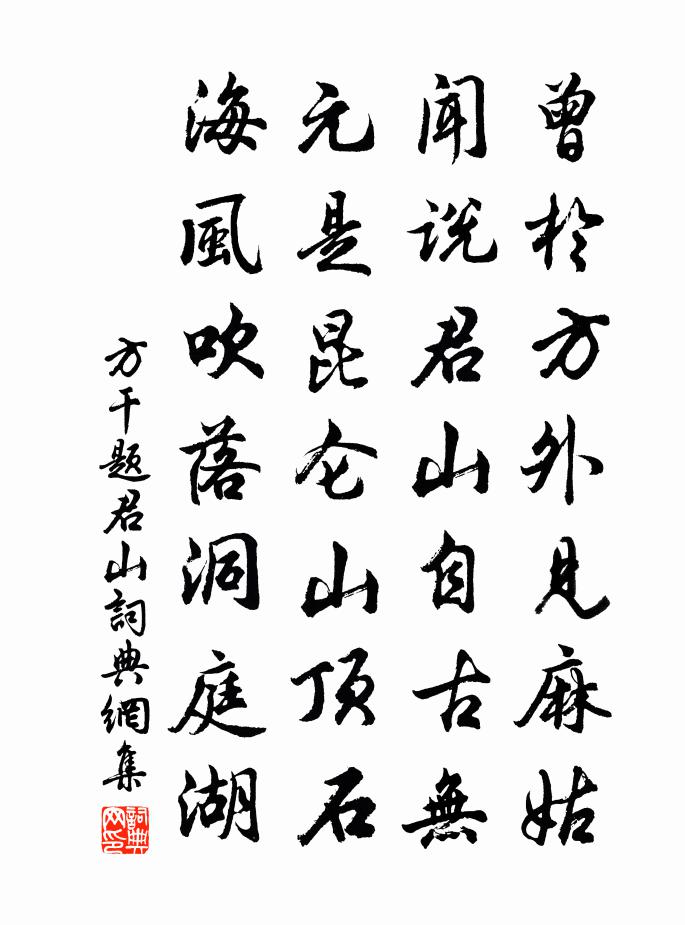 曾於方外見麻姑
聞说君山自古無
元是昆仑山顶石
海風吹落洞庭湖
方干题君山詞典網集
詞典網印